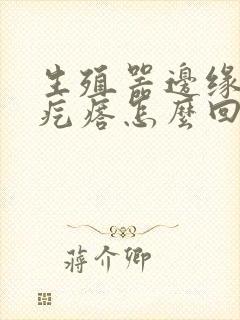 生殖器邊緣
疙瘩怎麼回
蔣介卿